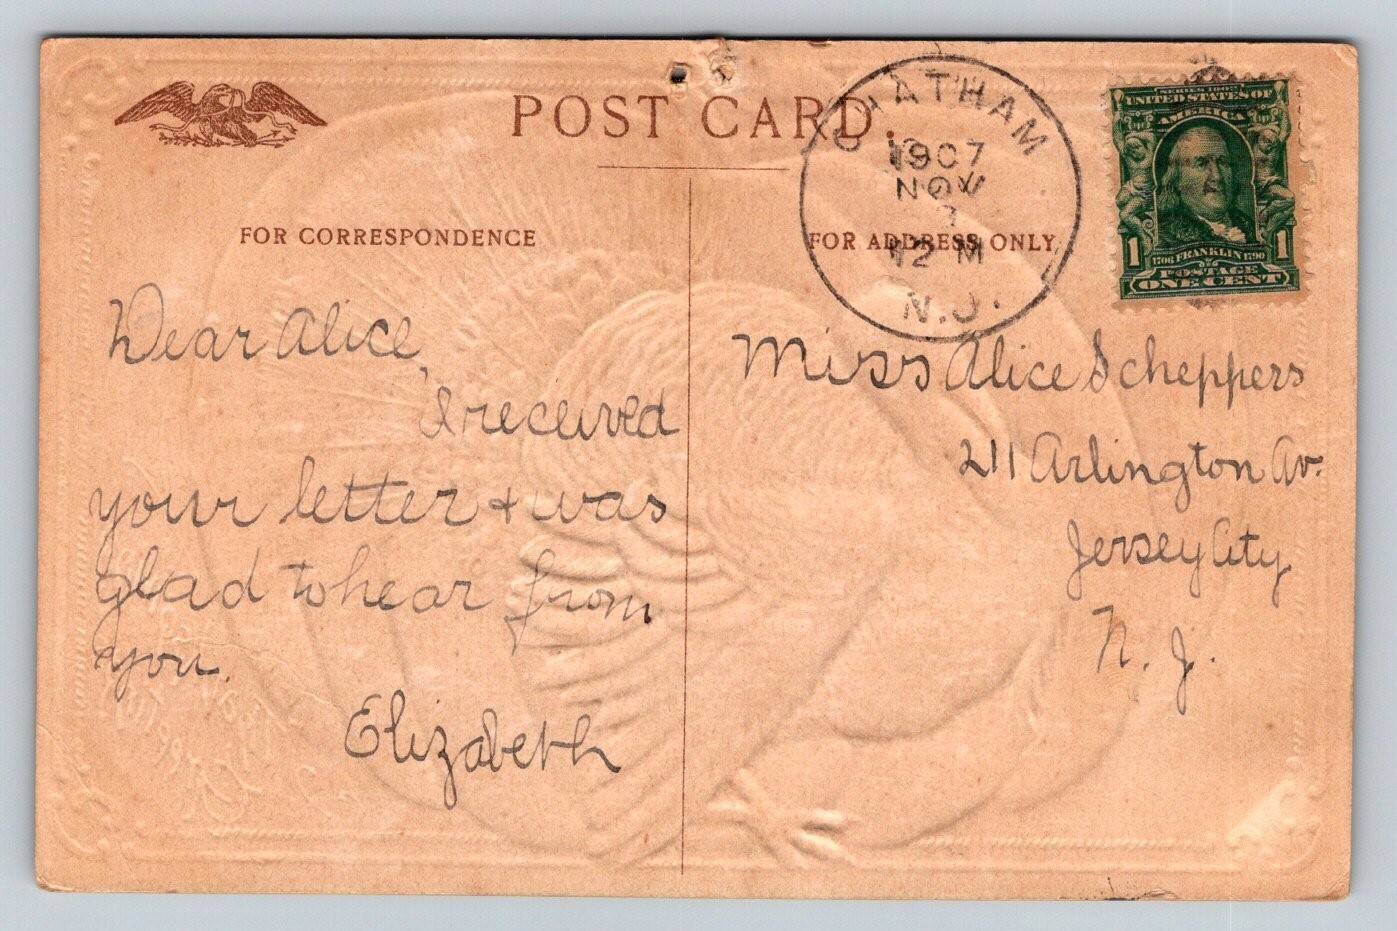 POST CARD.
CHATHAM
1907
NOV
12 M
N.J.
SERIES 1902
UNITED STATES OF
AMERICA
1 1
1706 FRANKLIN 1790
POSTAGE
ONE CENT
FOR CORRESPONDENCE
FOR ADDRESS ONLY
Dear Alice,
I received
your letter & was
glad to hear from
you.
Elizabeth
Miss Alice Scheppers
211 Arlington Av.
Jersey City
N. J.